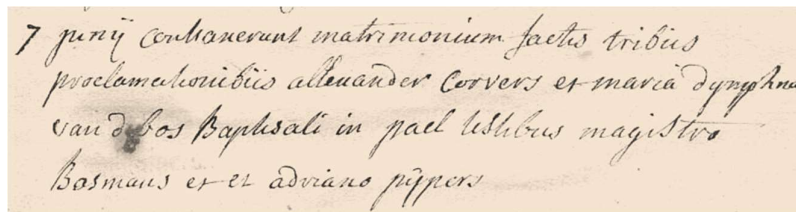 7 junij contraxerunt matrimonium factis tribus
proclamationibus allexander Corvers et maria dymphna
van d bos Baptisati in pael testibus magistro
Bosmans et et adriano pijpers